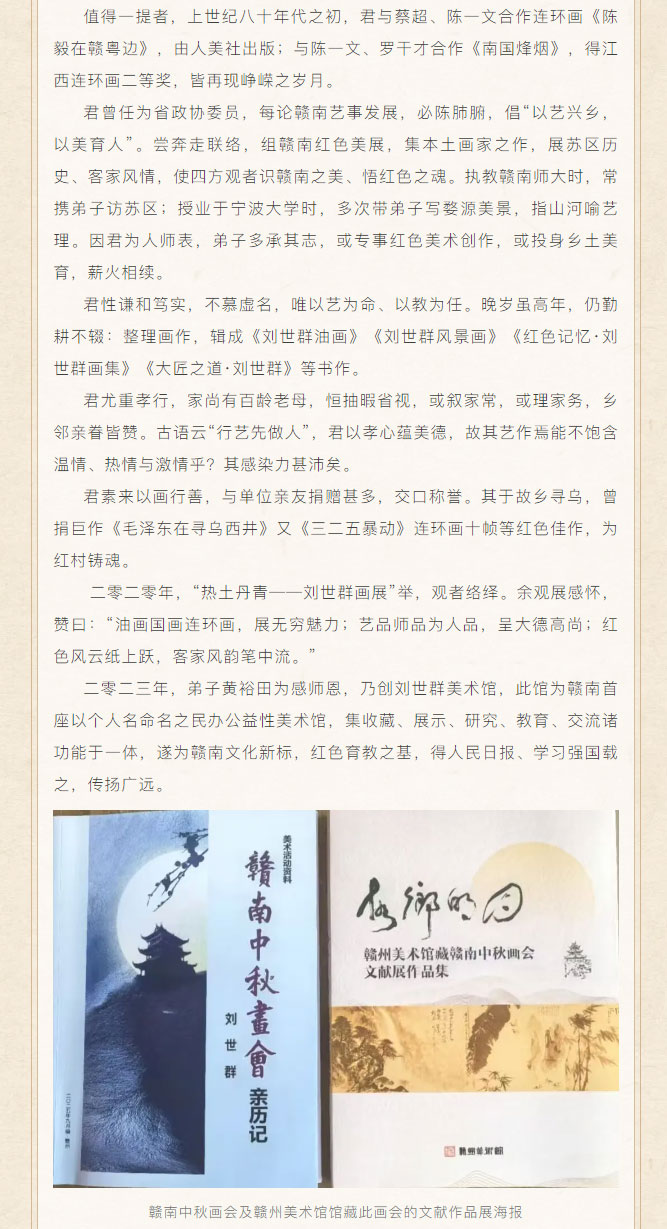 值得一提者，上世纪八十年代之初，君与蔡超、陈一文合作连环画《陈
毅在赣粤边》，由人美社出版；与陈一文、罗干才合作《南国烽烟》，得江
西连环画二等奖，皆再现峥嵘之岁月。
君曾任为省政协委员，每论赣南艺事发展，必陈肺腑，倡“以艺兴乡，
以美育人”。尝奔走联络，组赣南红色美展，集本土画家之作，展苏区历
史、客家风情，使四方观者识赣南之美、悟红色之魂。执教赣南师大时，常
携弟子访苏区；授业于宁波大学时，多次带弟子写婺源美景，指山河喻艺
理。因君为人师表，弟子多承其志，或专事红色美术创作，或投身乡土美
育，薪火相续。
君性谦和笃实，不慕虚名，唯以艺为命、以教为任。晚岁虽高年，仍勤
耕不辍：整理画作，辑成《刘世群油画》《刘世群风景画》《红色记忆·刘
世群画集》《大匠之道·刘世群》等书作。
君尤重孝行，家尚有百龄老母，恒抽暇省视，或叙家常，或理家务，乡
邻亲眷皆赞。古语云“行艺先做人”，君以孝心蕴美德，故其艺作焉能不饱含
温情、热情与激情乎？其感染力甚沛矣。
君素来以画行善，与单位亲友捐赠甚多，交口称誉。其于故乡寻乌，曾
捐巨作《毛泽东在寻乌西井》又《三二五暴动》连环画十帧等红色佳作，为
红村铸魂。
二零二零年，“热土丹青——刘世群画展”举，观者络绎。余观展感怀，
赞曰：“油画国画连环画，展无穷魅力；艺品师品为人品，呈大德高尚；红
色风云纸上跃，客家风韵笔中流。”
二零二三年，弟子黄裕田为感师恩，乃创刘世群美术馆，此馆为赣南首
座以个人名命名之民办公益性美术馆，集收藏、展示、研究、教育、交流诸
功能于一体，遂为赣南文化新标，红色育教之基，得人民日报、学习强国载
之，传扬广远。
美术活动资料
贛南中秋畫會
亲历记
刘世群
故鄉的月
赣州美术馆藏赣南中秋画会
文献展作品集
赣州美術館
赣南中秋画会及赣州美术馆馆藏此画会的文献作品展海报